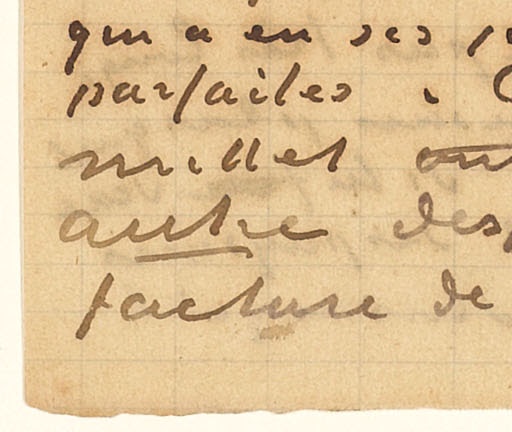 qui a eu ses
parfaites :
millet ou
autre des
facture de